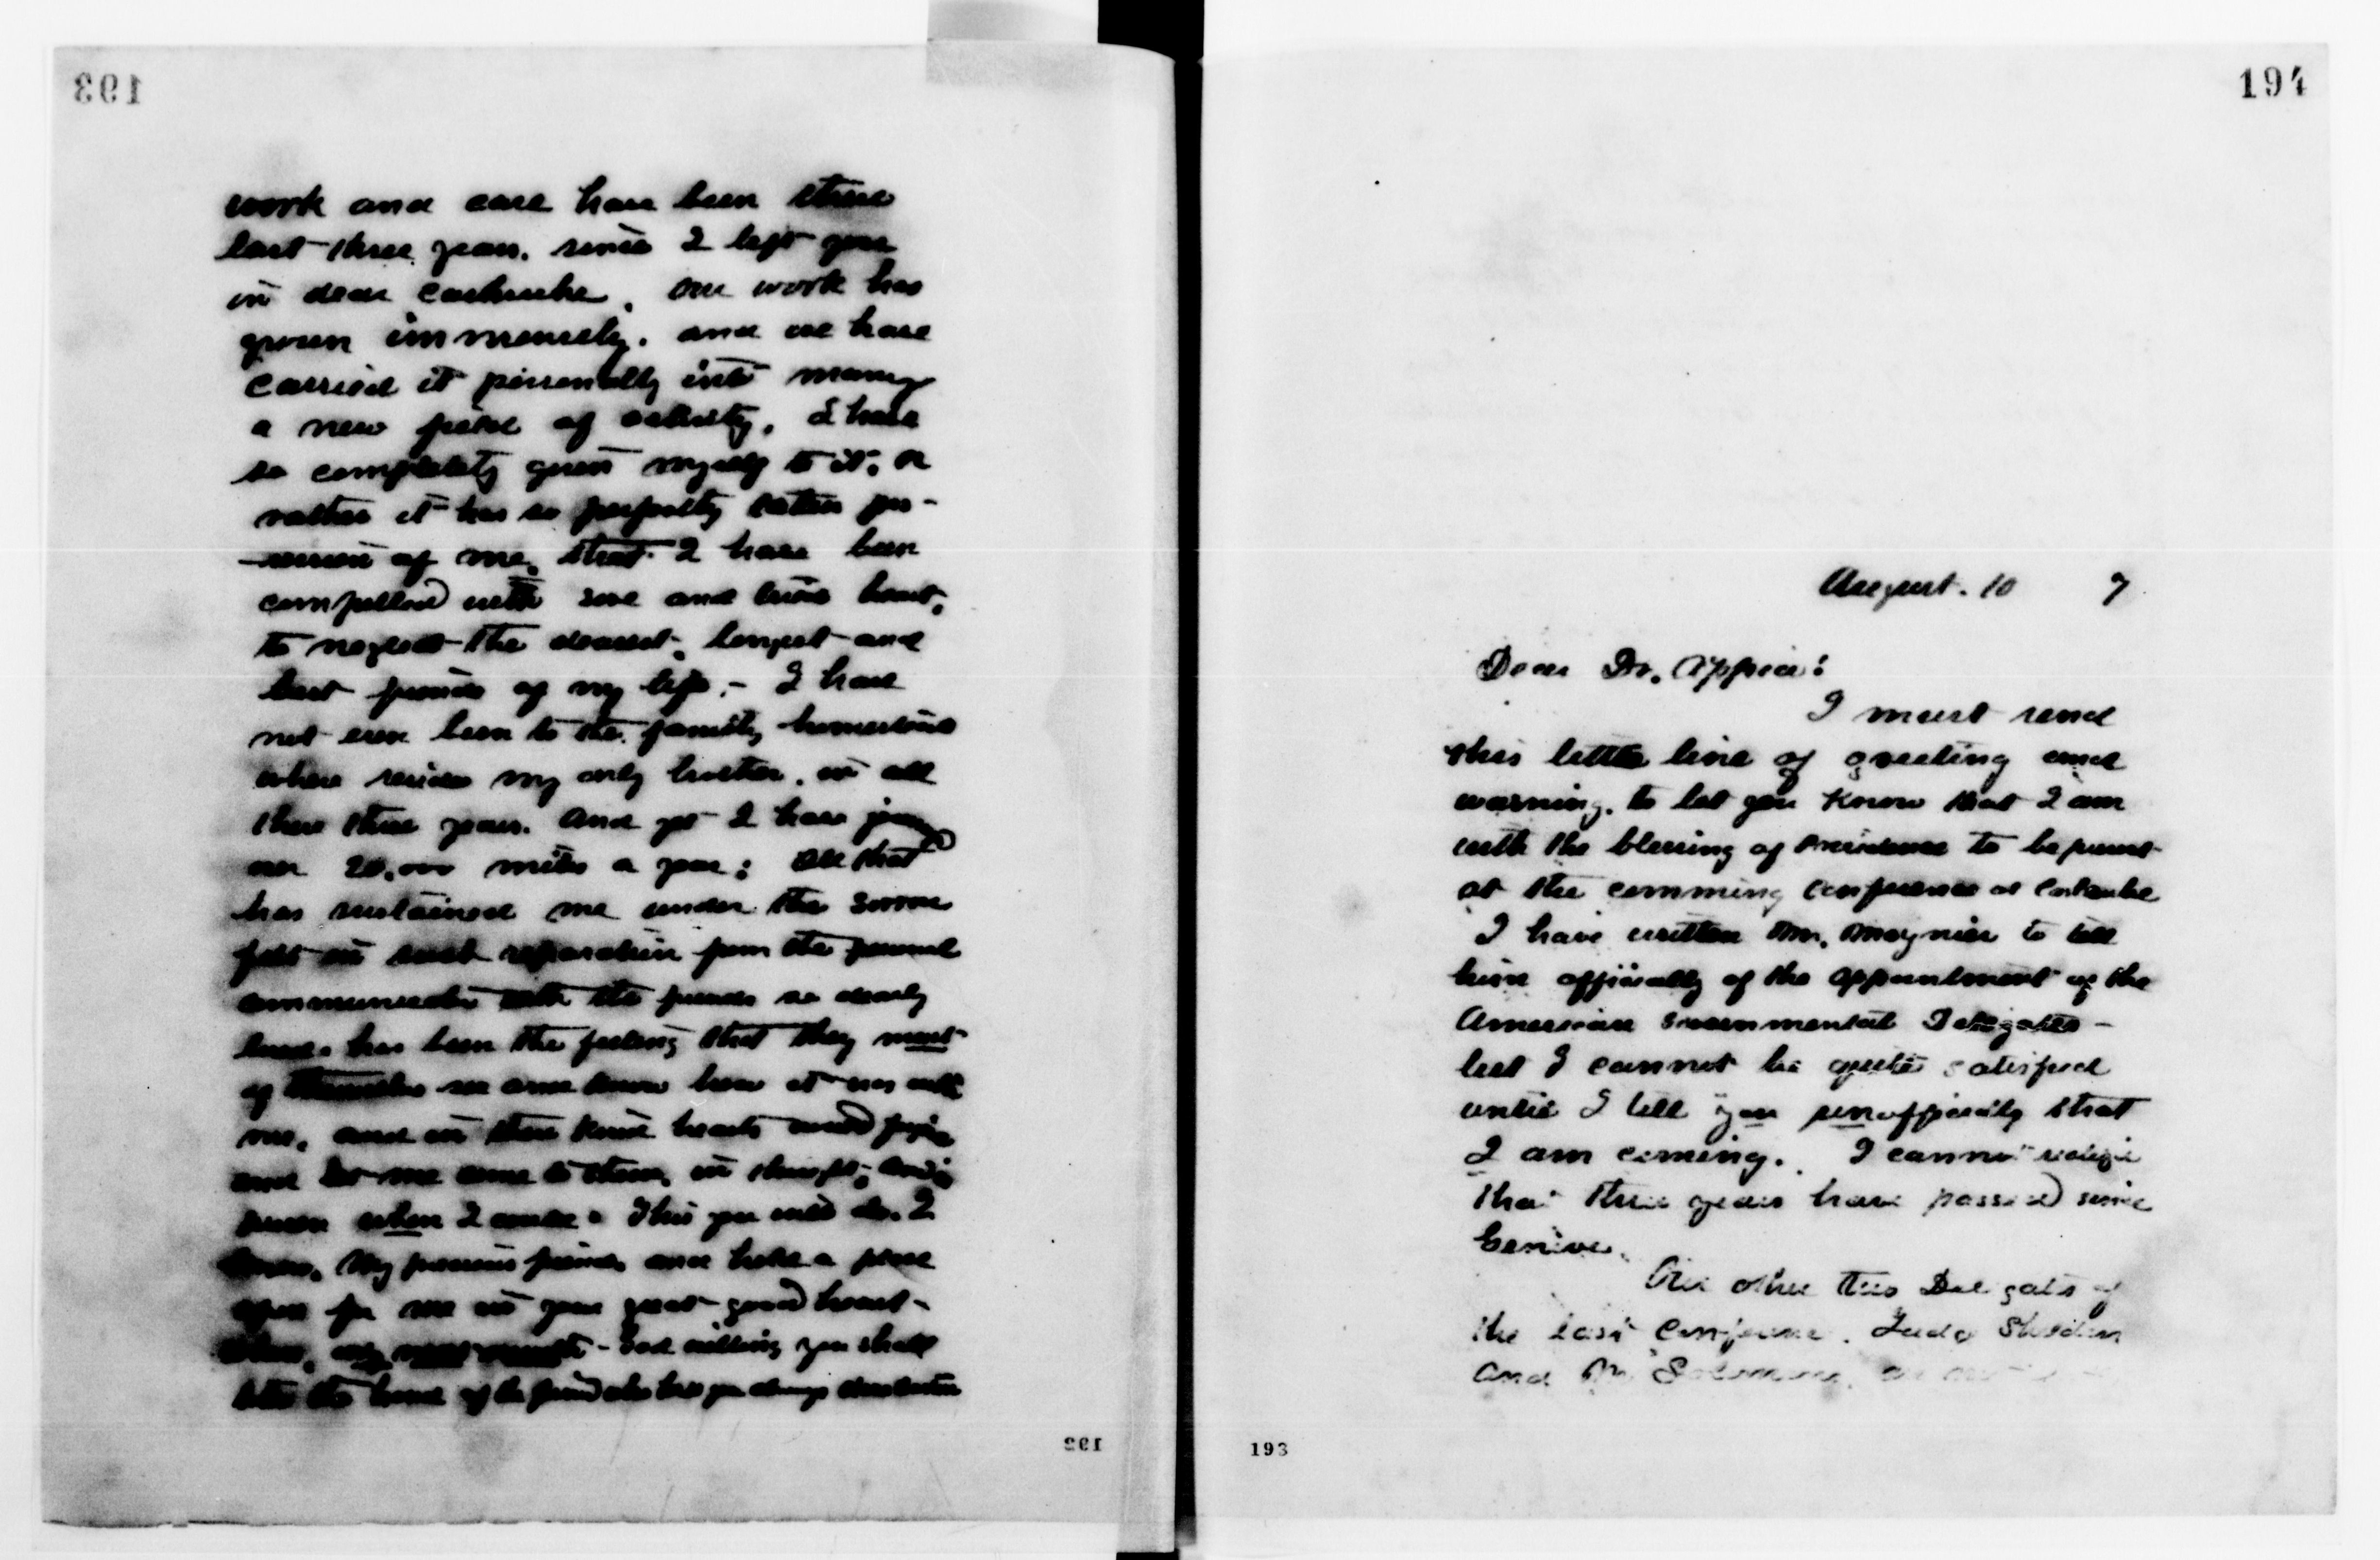 193
work and care have been these
last three years. since I left you
in dear Carlsruhe. Our work has
grown immensely. and we have
carried it personally into many
a new field of activity. I have
so completely given myself to it, or
rather it has so perfectly taken pos-
session of me, that I have been
compelled with sore and tried heart,
to neglect the dearest, longest and
best friends of my life. - I have
not even been to the family
where resides my only brother. in all
these three years. And yet I have
over 20,000 miles a year; All that
has sustained me under the sorrow
felt in such separation from the personal
communication with the friends so dearly
loved. has been the feeling that they must
of themselves see and know how it was with
me, and in their kind hearts would forgive
and let me come to them, in thought, and in
person when I could. This you will do. I
know, My precious friend, and hold a place
open for me in your great good heart -
God willing you shall
take the hand of the friend who
192
194
August. 10 7
Dear Dr. Appia:
I must send
this little line of greeting and
warning. to let you know that I am
with the blessing of Providence to be present
at the comming Conference at Carlsruhe
I have written Mr. Moynier to tell
him officially of the appointment of the
American Governmental Delegates -
but I cannot be quite satisfied
until I tell you unofficially that
I am coming. I cannot realize
that three years have passed since
Geneva.
Our other two Delegates of
the last Conference. Judge Sheldon
and Mr Solomons,
193